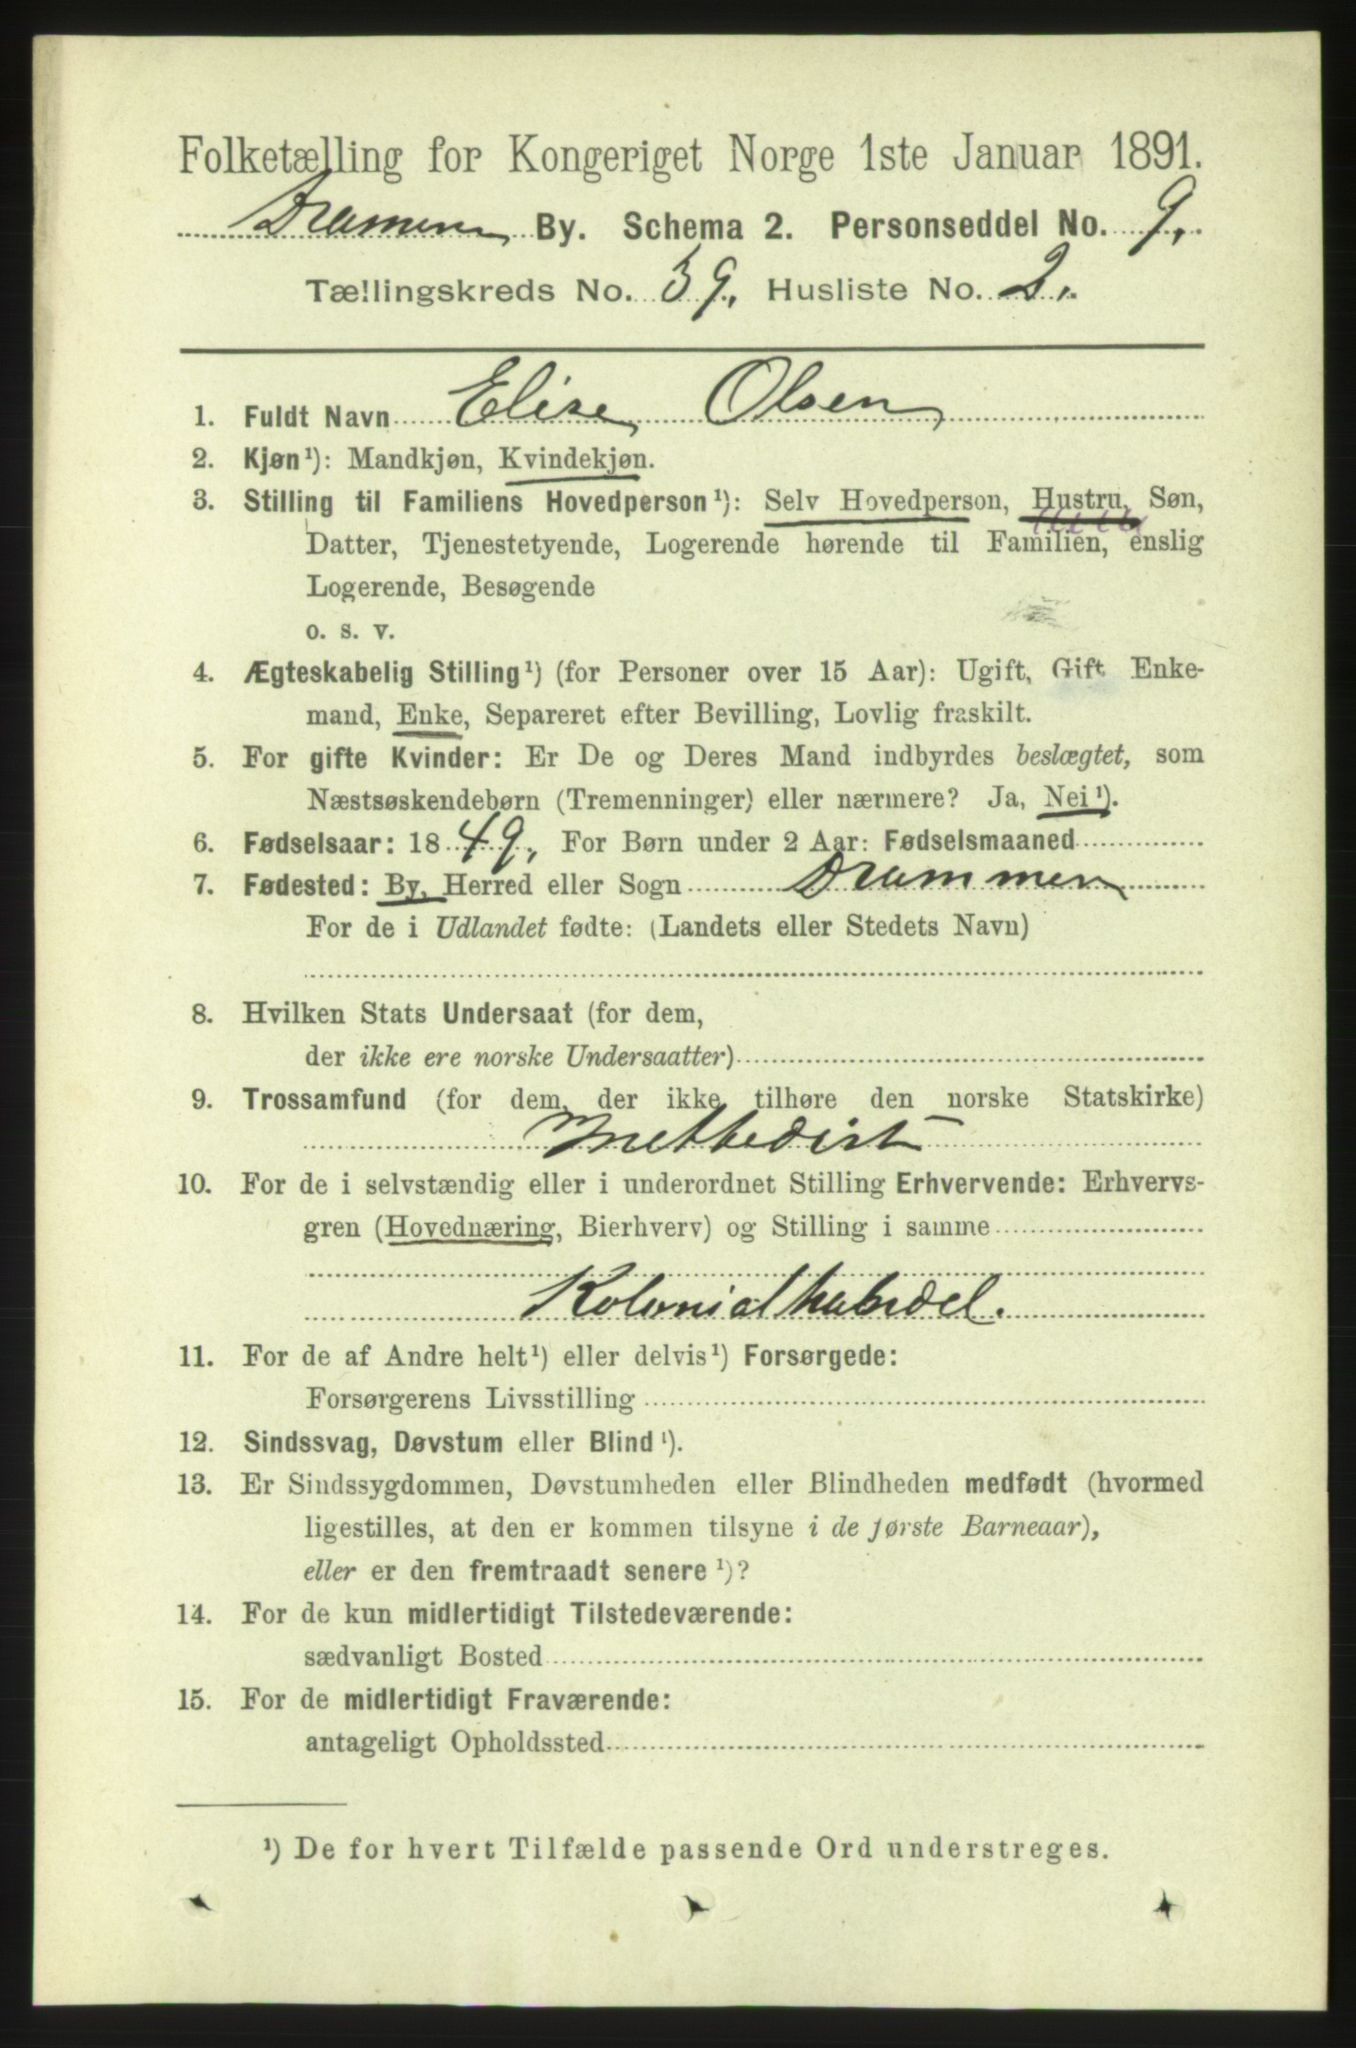 Folketælling for Kongeriget Norge 1ste Januar 1891.
Dramen By. Schema 2. Personseddel No. 9.
Tællingskreds No. 39. Husliste No. 2.
1. Fuldt Navn Elise Olsen
2. Kjøn¹): Mandkjøn, Kvindekjøn.
3. Stilling til Familiens Hovedperson¹): Selv Hovedperson, Hustru, Søn,
Datter, Tjenestetyende, Logerende hørende til Familien, enslig
Logerende, Besøgende
o. s. v.
4. Ægteskabelig Stilling¹) (for Personer over 15 Aar): Ugift, Gift Enke-
mand, Enke, Separeret efter Bevilling, Lovlig fraskilt.
5. For gifte Kvinder: Er De og Deres Mand indbyrdes beslægtet, som
Næstsøskendebørn (Tremenninger) eller nærmere? Ja, Nei¹).
6. Fødselsaar: 1849, For Børn under 2 Aar: Fødselsmaaned
7. Fødested: By, Herred eller Sogn Drammen
For de i Udlandet fødte: (Landets eller Stedets Navn)
8. Hvilken Stats Undersaat (for dem,
der ikke ere norske Undersaatter)
9. Trossamfund (for dem, der ikke tilhøre den norske Statskirke)
Methodist
10. For de i selvstændig eller i underordnet Stilling Erhvervende: Erhvervs-
gren (Hovednæring, Bierhverv) og Stilling i samme
Kolonialhandel.
11. For de af Andre helt¹) eller delvis¹) Forsørgede:
Forsørgerens Livsstilling
12. Sindssvag, Døvstum eller Blind¹).
13. Er Sindssygdommen, Døvstumheden eller Blindheden medfødt (hvormed
ligestilles, at den er kommen tilsyne i de første Barneaar),
eller er den fremtraadt senere¹)?
14. For de kun midlertidigt Tilstedeværende:
sædvanligt Bosted
15. For de midlertidigt Fraværende:
antageligt Opholdssted
¹) De for hvert Tilfælde passende Ord understreges.